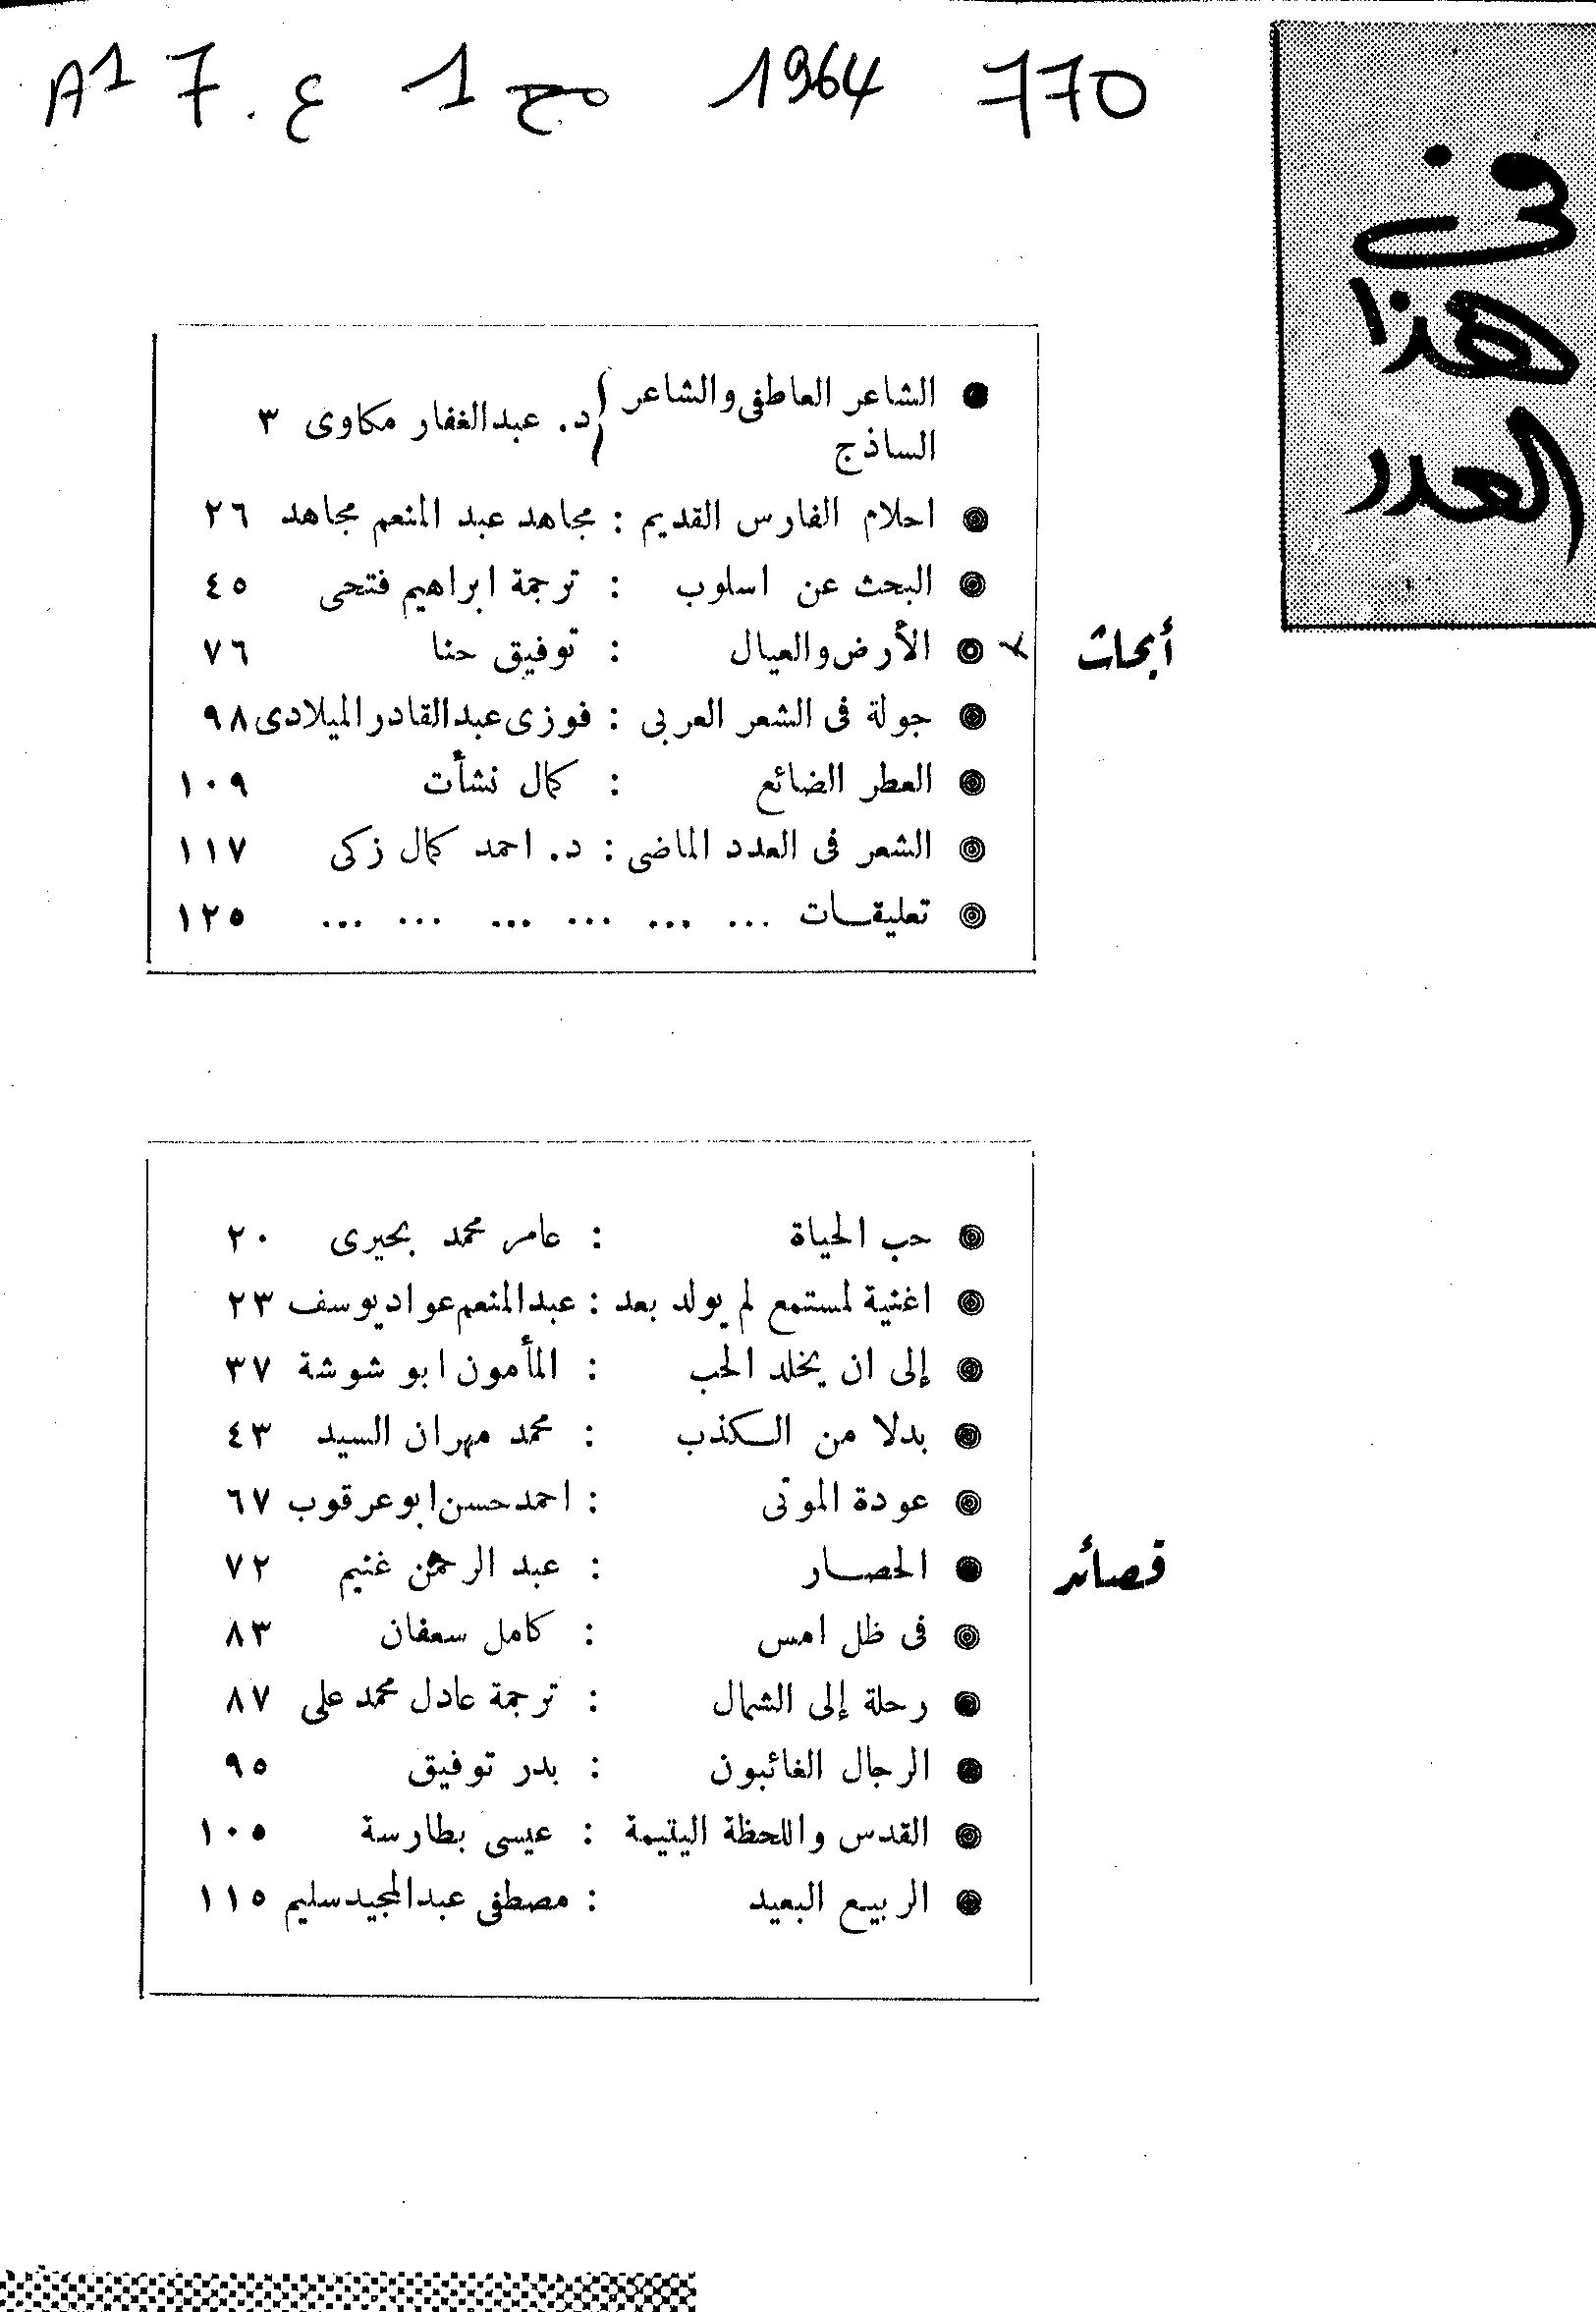 770 1964 مج 1 ع. 7 A1
فى
هذا
العدد
أبحاث
الشاعر العاطفى والشاعر الساذج ) د. عبدالغفار مكاوى ٣
احلام الفارس القديم : مجاهد عبد المنعم مجاهد ٢٦
البحث عن اسلوب : ترجمة ابراهيم فتحى ٤٥
الأرض والعيال : توفيق حنا ٧٦
جولة فى الشعر العربى : فوزى عبدالقادر الميلادى ٩٨
العطر الضائع : كمال نشأت ١٠٩
الشعر فى العدد الماضى : د. احمد كمال زكى ١١٧
تعليقــات ... ... ... ... ... ... ١٢٥
قصائد
حب الحياة : عامر محمد بحيرى ٢٠
اغنية لمستمع لم يولد بعد : عبدالمنعم عواد يوسف ٢٣
إلى ان يخلد الحب : المأمون ابو شوشة ٣٧
بدلا من الـكذب : محمد مهران السيد ٤٣
عودة الموتى : احمد حسن ابو عرقوب ٦٧
الحصــار : عبد الرحمن غنيم ٧٢
فى ظل امس : كامل سعفان ٨٣
رحلة إلى الشمال : ترجمة عادل محمد على ٨٧
الرجال الغائبون : بدر توفيق ٩٥
القدس واللحظة اليتيمة : عيسى بطارسة ١٠٥
الربيع البعيد : مصطفى عبدالمجيد سليم ١١٥